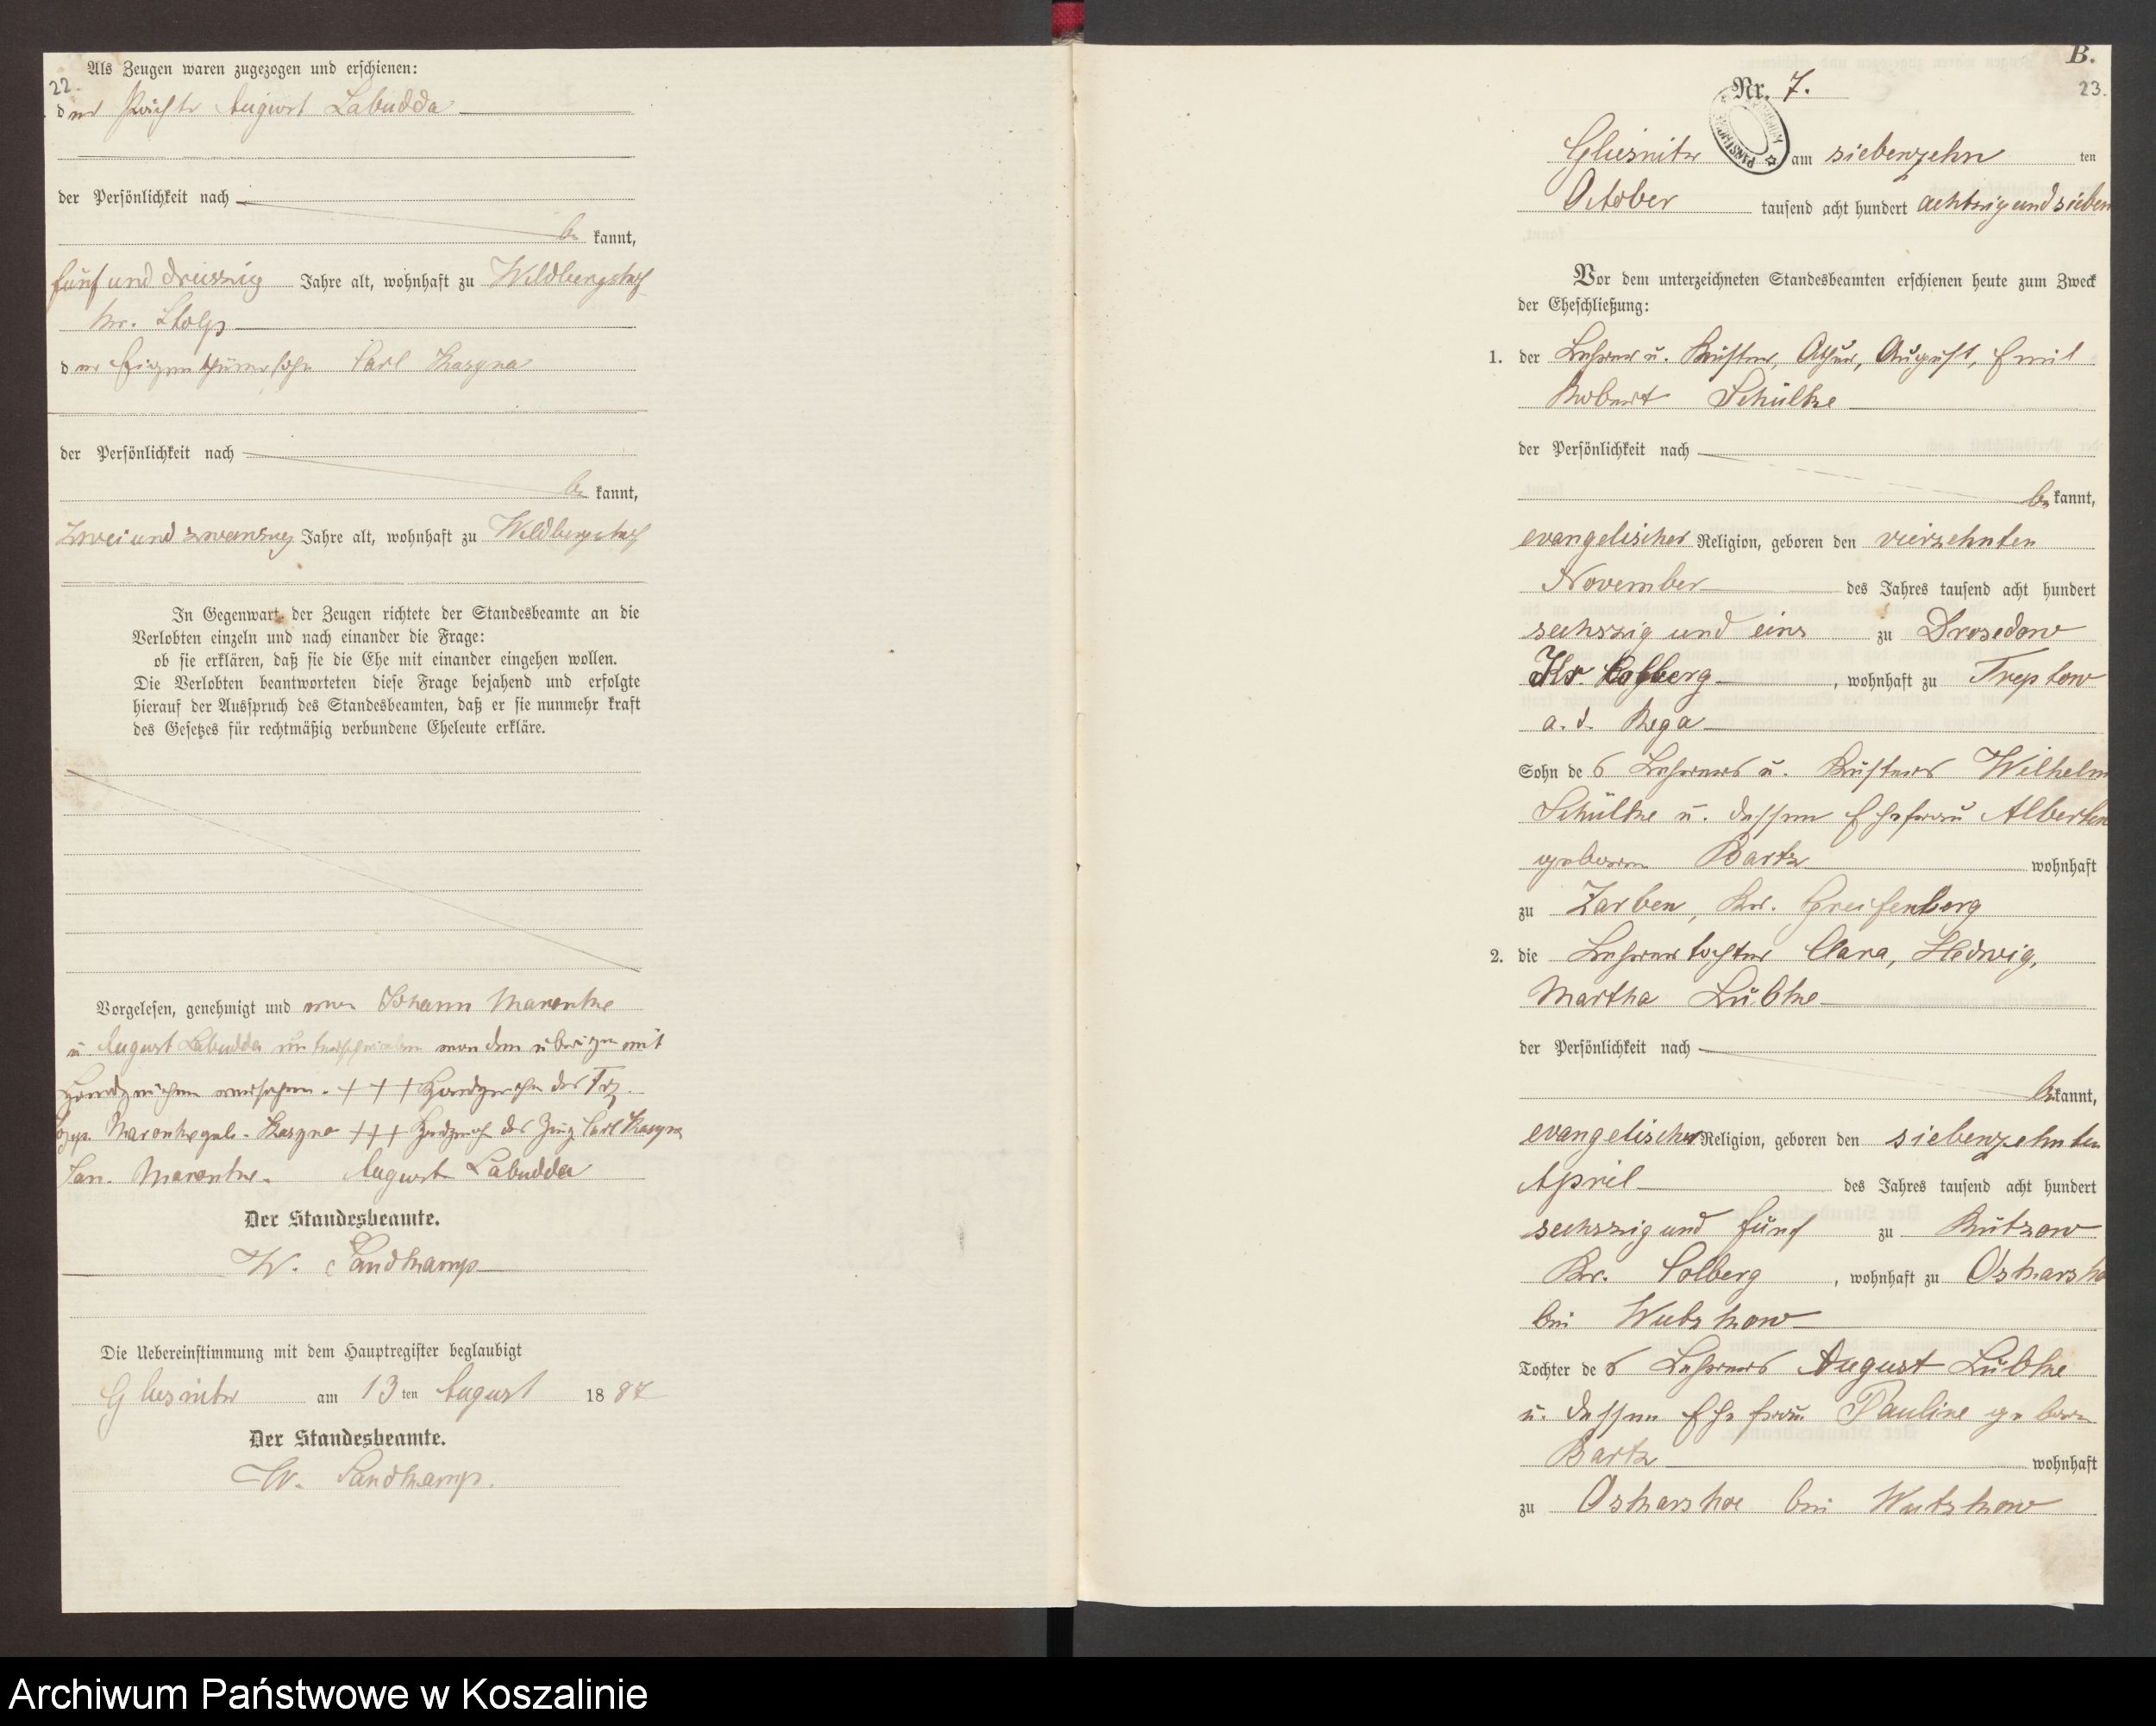 22.
Als Zeugen waren zugezogen und erschienen:
der August Labudda
der Persönlichkeit nach
be kannt,
fünf und dreissig Jahre alt, wohnhaft zu Wildbergshof
Kr. Stolp
der Eigenthümersohn Carl Kaszna
der Persönlichkeit nach
be kannt,
zwei und zwanzig Jahre alt, wohnhaft zu Wildbergshof
In Gegenwart der Zeugen richtete der Standesbeamte an die
Verlobten einzeln und nach einander die Frage:
ob sie erklären, daß sie die Ehe mit einander eingehen wollen.
Die Verlobten beantworteten diese Frage bejahend und erfolgte
hierauf der Ausspruch des Standesbeamten, daß er sie nunmehr kraft
des Gesetzes für rechtmäßig verbundene Eheleute erkläre.
Vorgelesen, genehmigt und von Johann Maronke
u August Labudda unterschrieben von dem übrigen mit
Handzeichen versehen. +++ Handzeichen der
Maronke geb. Kaszna +++ Handzeichen des Carl Kaszna
Maronke. August Labudda
Der Standesbeamte.
W. Sandkamp
Die Uebereinstimmung mit dem Hauptregister beglaubigt
Gliesnitz am 13 ten August 18 87
Der Standesbeamte.
W. Sandkamp.
B.
23.
Nr. 7.
Gliesnitz am siebenzehn ten
October tausend acht hundert achtzig und sieben
Vor dem unterzeichneten Standesbeamten erschienen heute zum Zweck
der Eheschließung:
1. der Lehrer u. Küster, August, Emil
Robert Schülke
der Persönlichkeit nach
be kannt,
evangelischer Religion, geboren den vierzehnten
November des Jahres tausend acht hundert
sechszig und eins zu Drosedow
Kr. Kolberg, wohnhaft zu Treptow
a. d. Rega
Sohn des Lehrers u. Küsters Wilhelm
Schülke u. dessen Ehefrau
geboren Bartz wohnhaft
zu Zarben, Kr. Greifenberg
2. die Lehrertochter Clara, Hedwig,
Martha Lübke
der Persönlichkeit nach
be kannt,
evangelischer Religion, geboren den siebenzehnten
April des Jahres tausend acht hundert
sechszig und fünf zu Rützow
Kr. Colberg, wohnhaft zu
bei Wutzkow
Tochter des Lehrers August Lübke
u. dessen Ehefrau Pauline geboren
Bartz wohnhaft
zu bei Wutzkow
Archiwum Państwowe w Koszalinie